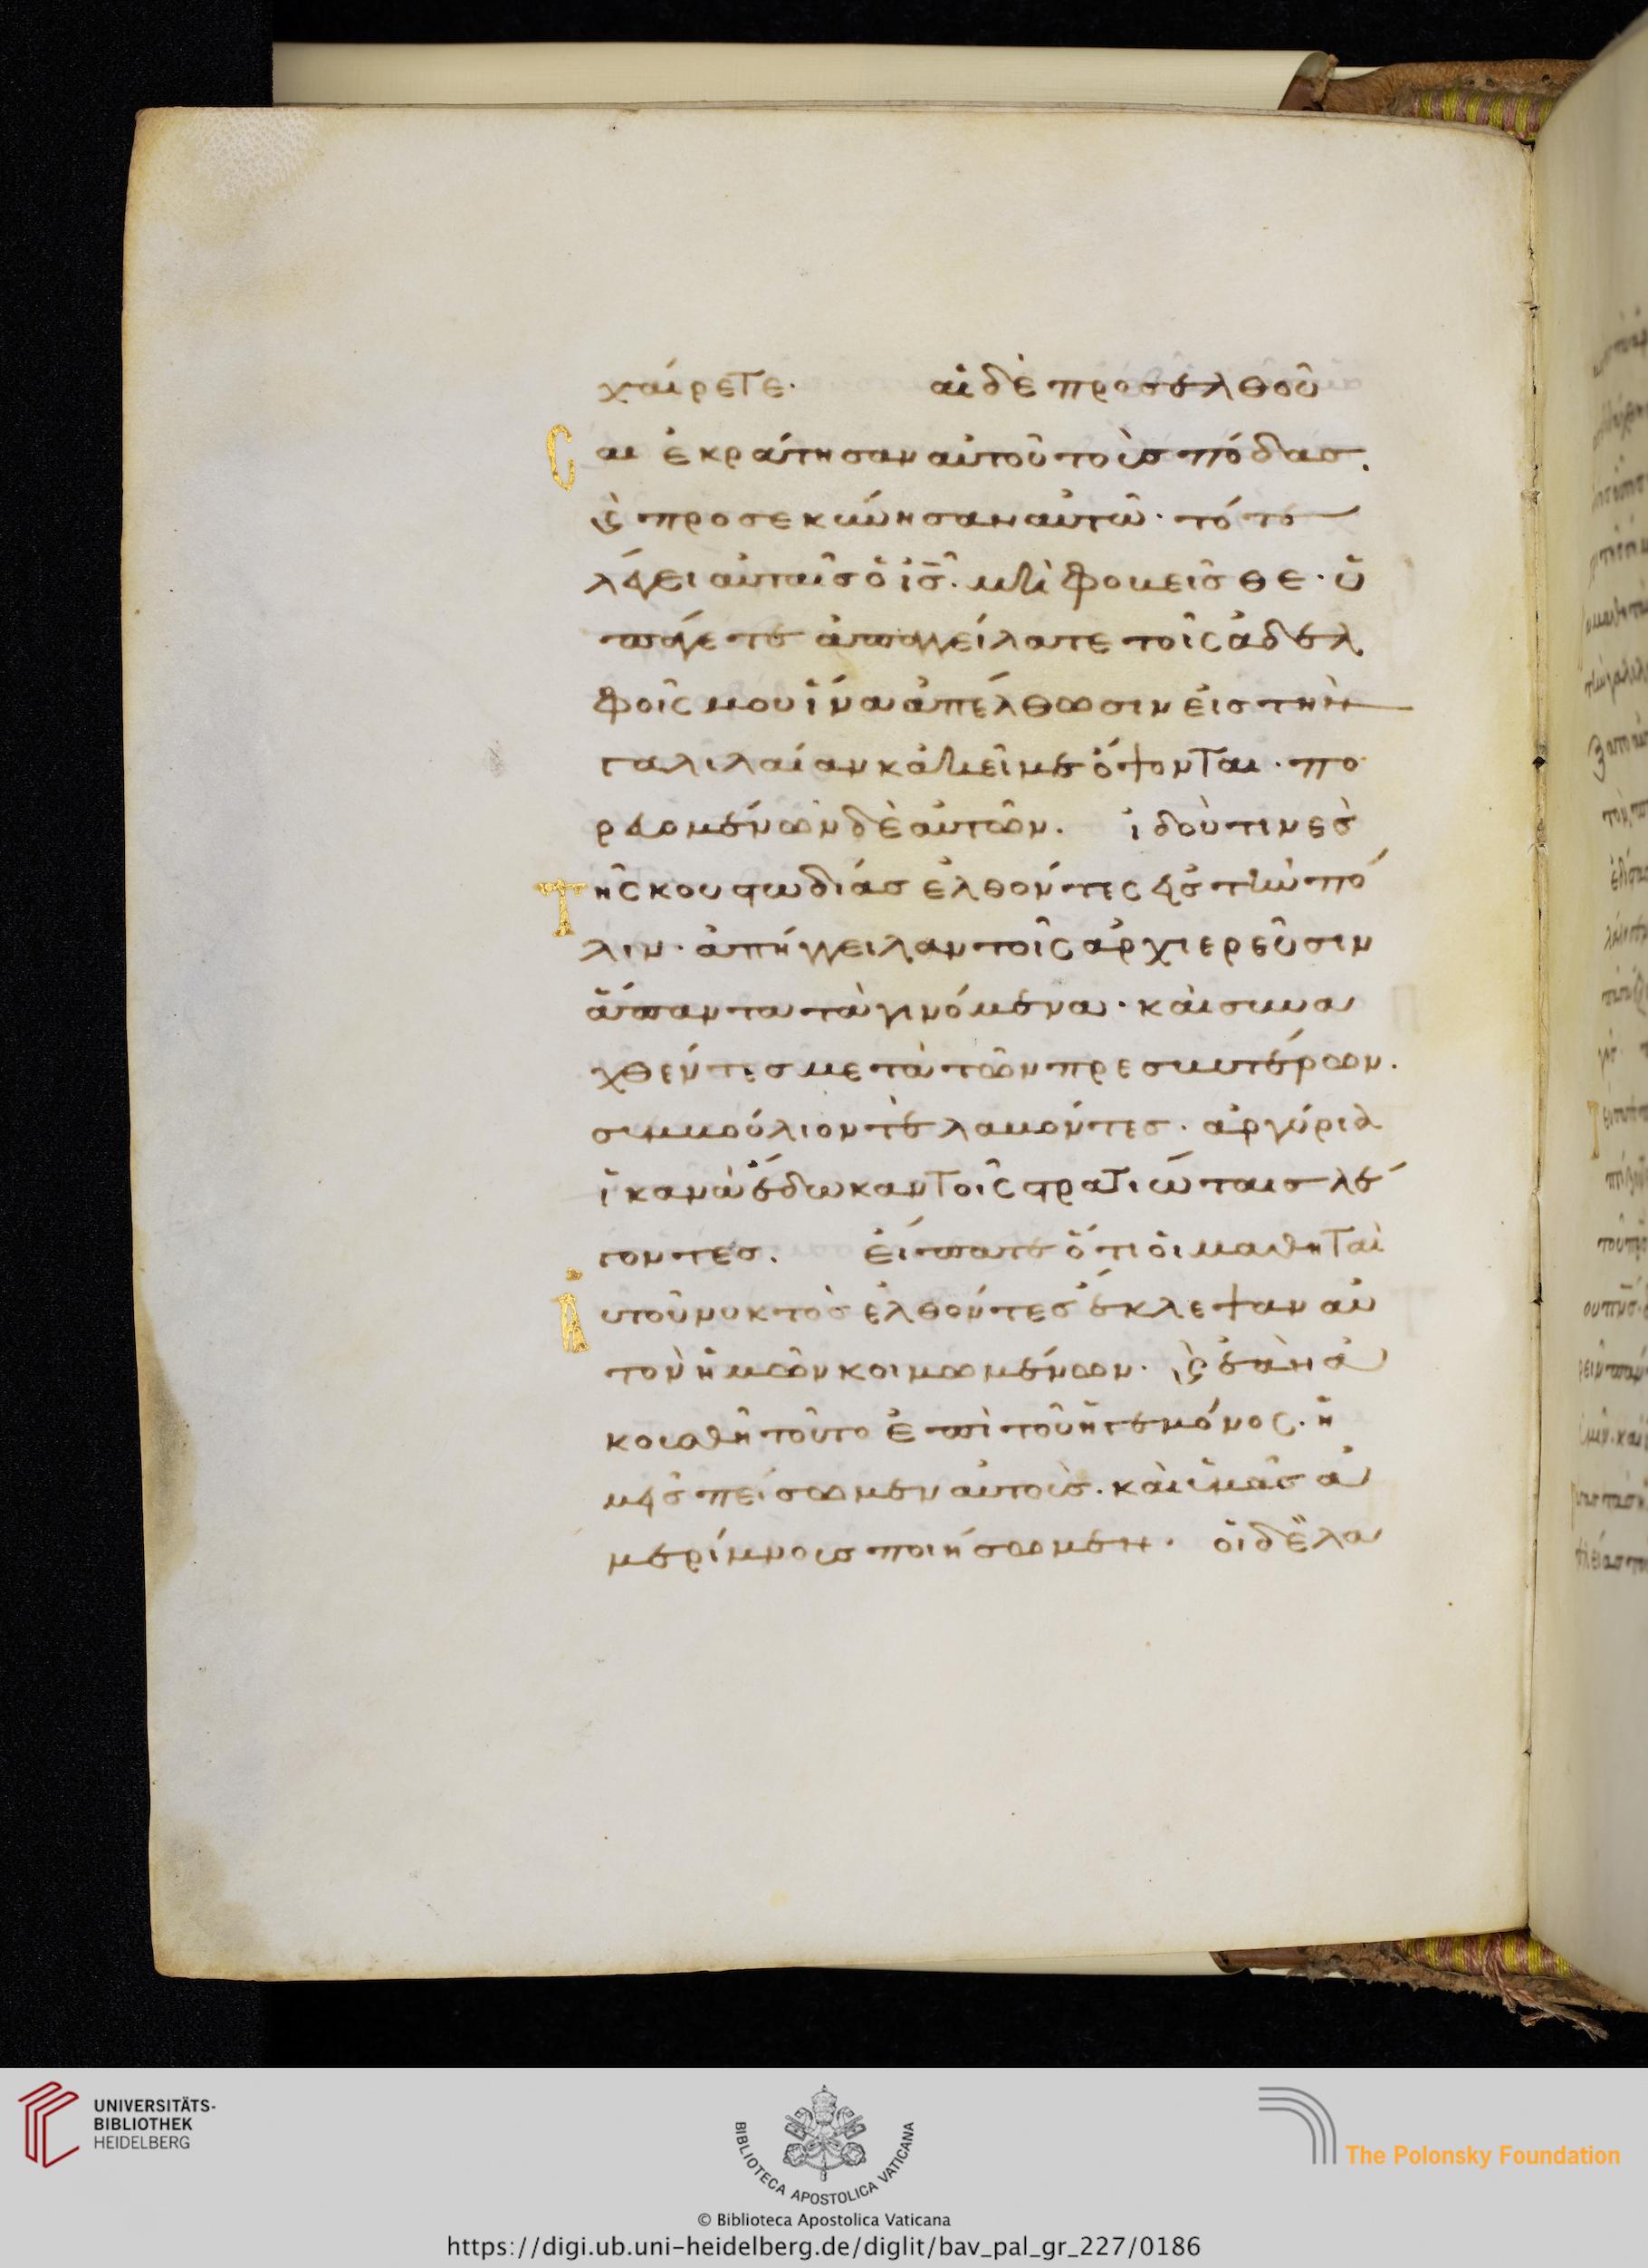 χαίρετε. αἱ δὲ προσελθοῦ
Σαι ἐκράτησαν αὐτοῦ τοὺσ πόδασ.
ϗ προσεκύνησαν αὐτῶ· τότε
λέγει αὐταῖσ ὁ ἰσ̅. μὴ φοβεῖσθε· ὑ
πάγετε ἀπαγγείλατε τοῖς ἀδελ
φοῖς μου ἵνα ἀπέλθωσιν εἰσ τὴν
γαλιλαίαν κἀκεῖ με ὄψονται· πο
ρευομένων δὲ αὐτῶν. ἰδού τινεσ
Τῆς κουστωδίασ ἐλθόντες εἰσ τὴν πό
λιν· ἀπήγγειλαν τοῖς ἀρχιερεῦσιν
ἅπαντα τὰ γινόμενα· καὶ συνα
χθέντεσ μετὰ τῶν πρεσβυτέρων.
συμβούλιόν τε λαβόντεσ. ἀργύρια
ἱκανὰ ἔδωκαν τοῖς στρατιώταισ λέ
γοντεσ. εἴπατε ὅτι οἱ μαθηταὶ
Αὐτοῦ νυκτὸσ ἐλθόντεσ ἔκλεψαν αὐ
τὸν ἡμῶν κοιμωμένων· ϗ ἐὰν ἀ
κουσθῆ τοῦτο ἐπὶ τοῦ ἡγεμόνος. ἡ
μεῖσ πείσωμεν αὐτούσ. καὶ ὑμᾶσ ἀ
μερίμνουσ ποιήσωμεν. οἱ δὲ λα
UNIVERSITÄTS-
BIBLIOTHEK
HEIDELBERG
BIBLIOTECA APOSTOLICA VATICANA
The Polonsky Foundation
© Biblioteca Apostolica Vaticana
https://digi.ub.uni-heidelberg.de/diglit/bav_pal_gr_227/0186